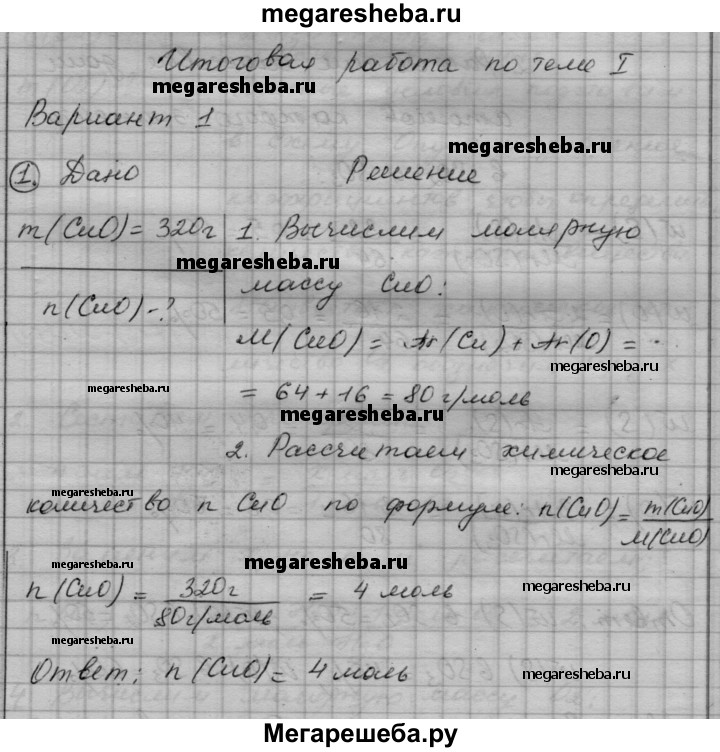 megaresheba.ru
Итоговая работа по теме I
megaresheba.ru
Вариант 1
megaresheba.ru
1. Дано Решение
m(CuO)=320г 1. Вычислим молярную
megaresheba.ru
массу CuO:
n(CuO)-?
M(CuO) = Ar(Cu) + Ar(O) =
megaresheba.ru
= 64 + 16 = 80 г/моль
megaresheba.ru
2. Рассчитаем химическое
megaresheba.ru
megaresheba.ru
количество n CuO по формуле: n(CuO)= m(CuO)/M(CuO)
megaresheba.ru
megaresheba.ru
n(CuO) = 320г/80г/моль = 4 моль
megaresheba.ru
megaresheba.ru
Ответ: n(CuO)= 4 моль
Мегарешеба.ру